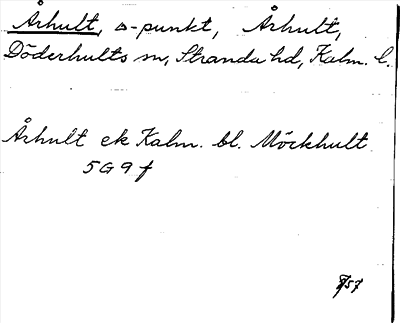 Århult, △-punkt, Århult,
Döderhults sn, Stranda hd, Kalm. l.
Århult ek Kalm. bl. Möckhult
5G9f